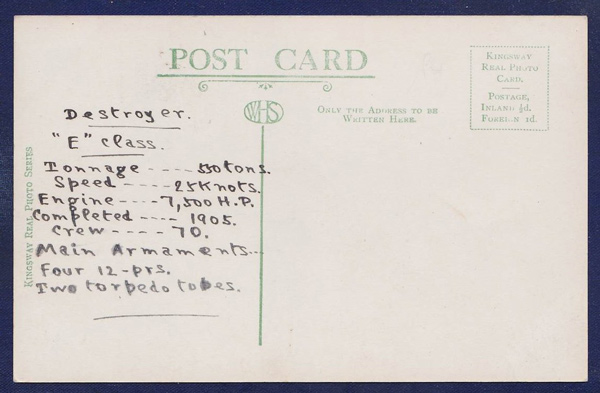 POST CARD
KINGSWAY
REAL PHOTO
CARD.
POSTAGE,
INLAND ½d.
FOREIGN 1d.
WHS
ONLY THE ADDRESS TO BE
WRITTEN HERE.
KINGSWAY REAL PHOTO SERIES
Destroyer.
"E" class.
Tonnage ---- 550 tons.
Speed ---- 25 Knots.
Engine ---- 7,500 H.P.
Completed ---- 1905.
Crew ---- 70.
Main Armaments...
Four 12-prs.
Two torpedo tubes.